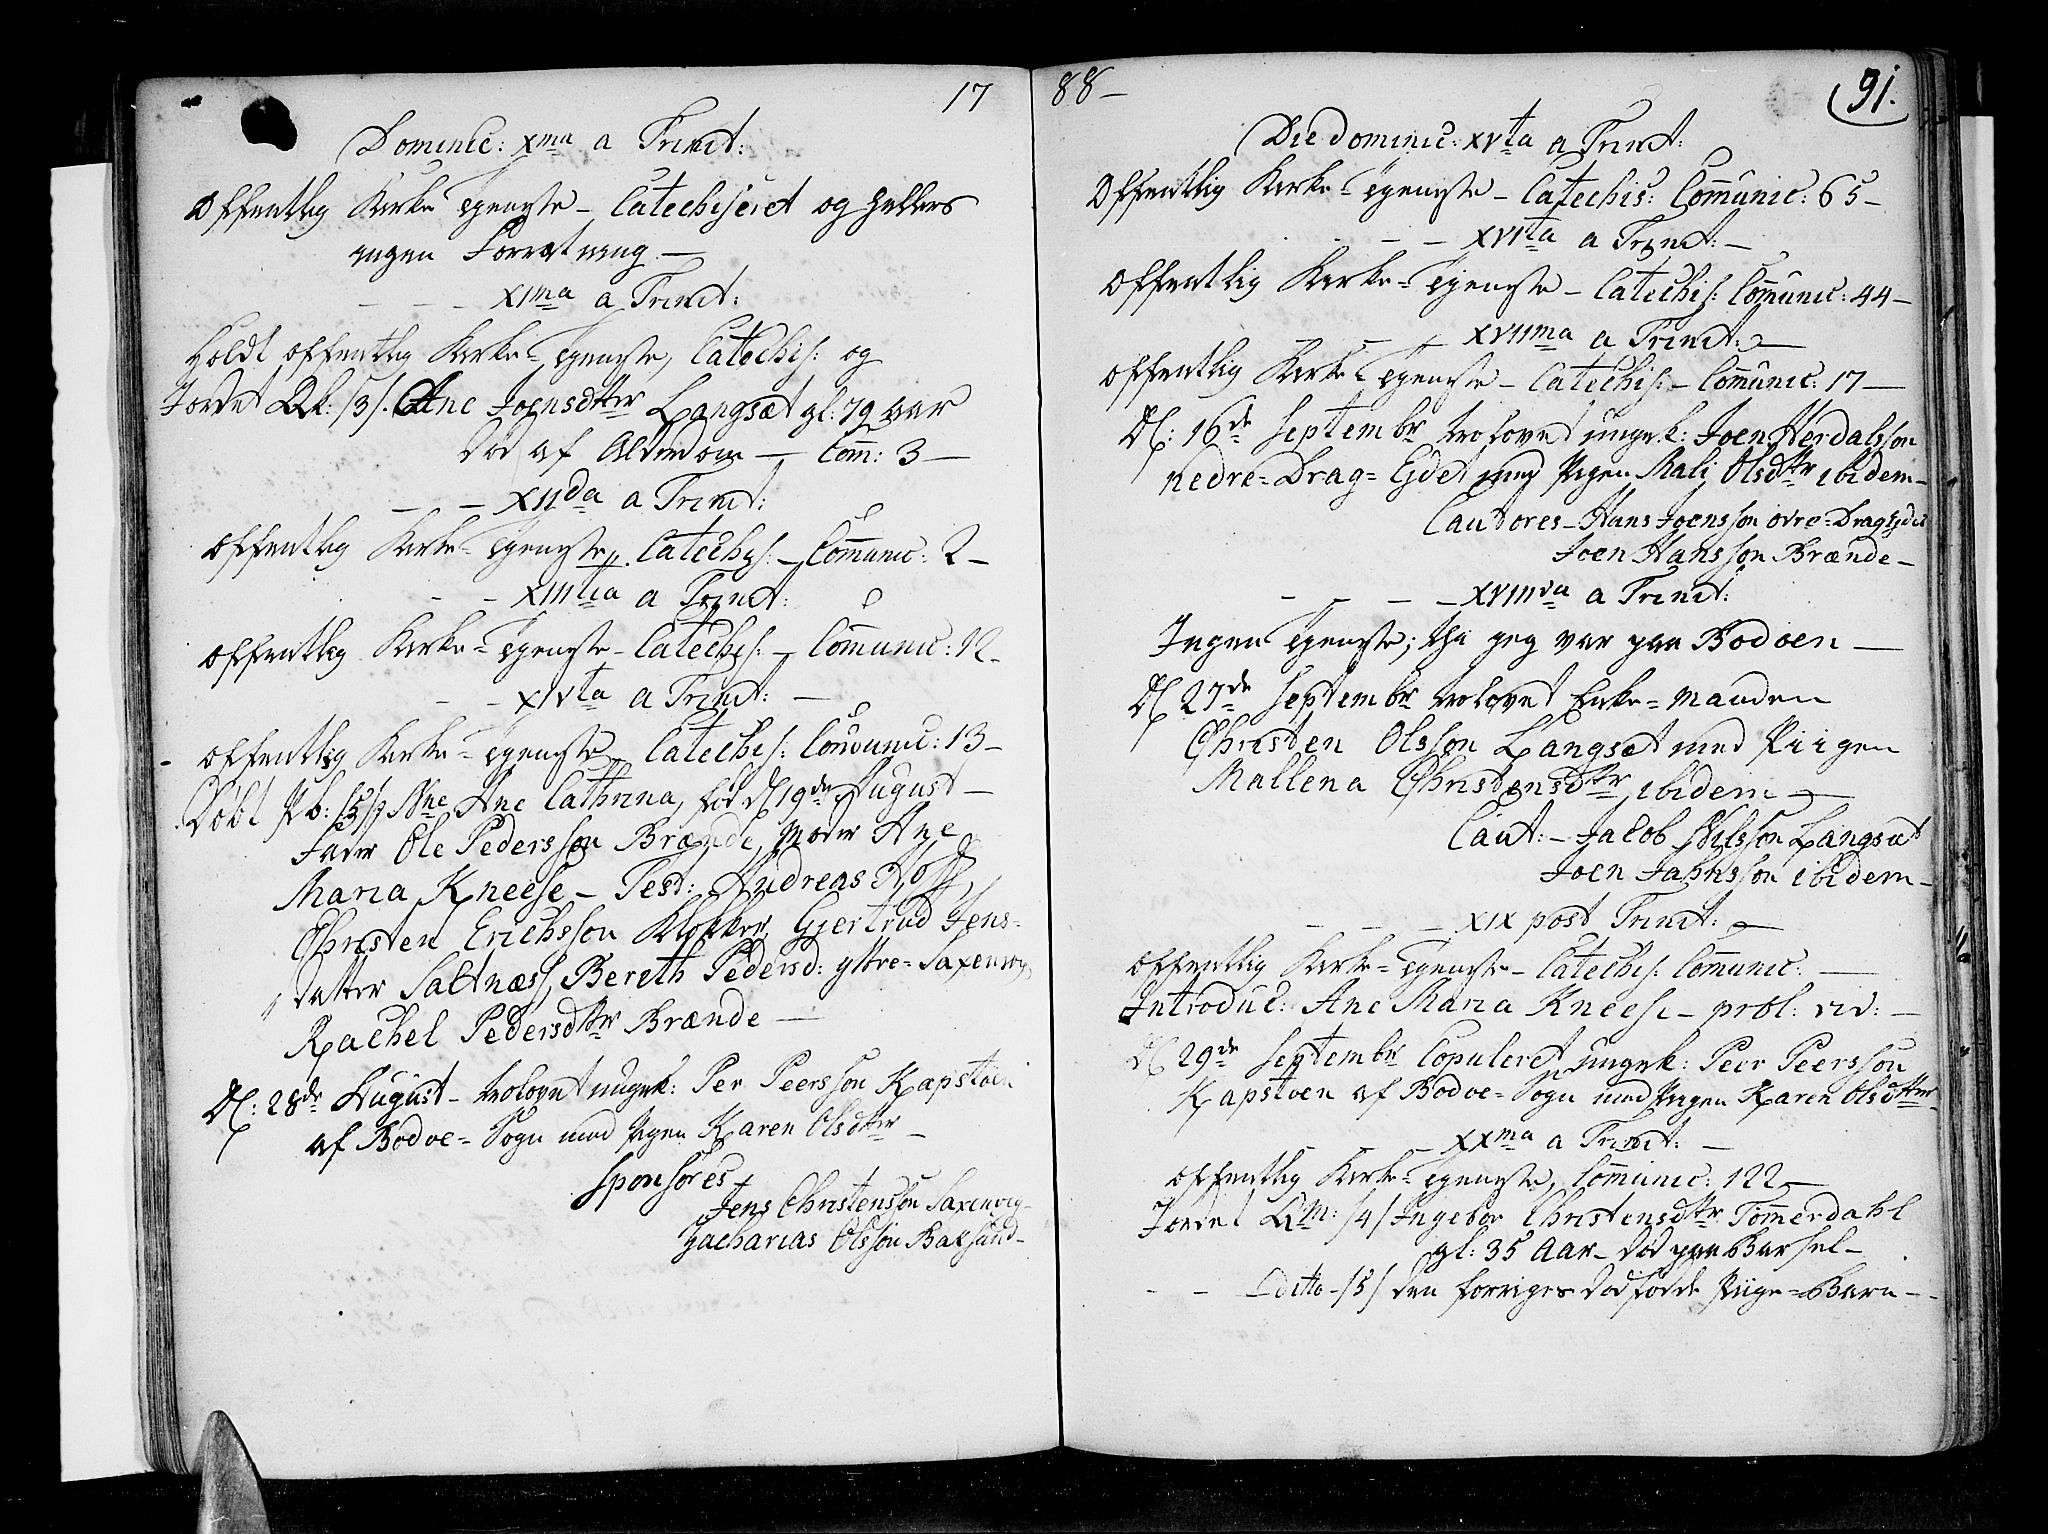 17
Dominic: Xma a Trinit:
Offentlig Kirke Tjeneste - Catechiseret og hellers
ingen Forretning —
— — — XIma a Trinit:
Holdt offentlig Kirke-Tjeneste, Catechis: og
Jordet Qk: /3/. Ane Joensdtter Langsæt gl: 79 aar
død af Alderdom — Com̄: 3 —
— — XIIda a Trinit:
Offentlig Kirke-Tjeneste, Catechis: - Com̄unic: 2 -
— — XIIItia a Trinit:
offentlig Kirke-Tjeneste - Catechis: - Com̄unic: 12 -
— — XIVta a Trinit: —
offentlig Kirke-Tjeneste - Catechis: Com̄unic: 13 -
Døbt Pb: /5/ Nne Ane Cathrina, fød d 19de August -
Fader Ole Pedersson Brænde, Moder Ane
Maria Kneese - Test: Andreas Hoff,
Christen Erichsson Klokker, Gjertrud Jens-
datter Saltnæss, Bereth Pedersd: yttre-Saxenvig
Rachel Pedersdtter Brænde —
D: 28de August - trolovet ungk: Per Peersson Kapstøen
af Bodøe-Sogn med Pigen Karen Olsdtter -
Sponsores -
Jens Christensson Saxenvig -
Zacharias Olsson Baksund -
88 —
91.
Die dominic: XVta a Trinit:
Offentlig Kirke-Tjeneste - Catechis: Com̄unic: 65 -
— — XVIta a Trinit: —
Offentlig Kirke-Tjeneste - Catechis: Com̄unic: 44 -
— — XVIIma a Trinit: —
offentlig Kirke-Tjeneste - Catechis: - Com̄unic: 17 —
D: 16de Septembr trolovet ungk: Joen Herdalsson
nedre-Drag-Ejdet med Pigen Mali Olsdtr ibidem -
Cautores - Hans Joensson øvre-Dragejdet
Joen Hansson Brænde -
— — — — XVIIIva a Trinit:
Ingen Tjeneste; thi jeg var paa Bodøen —
D 27de Septembr trolovet Enke-Manden
Christen Olsson Langsæt med Piigen
Mallena Christensdtr ibidem —
Caut: - Jacob Nilsson Langsæt
Joen Jahnsson ibidem -
— — — XIX post Trinit: —
offentlig Kirke-Tjeneste - Catechis: Com̄unic: —
Introduc: Ane Maria Kneese - prol: viv: —
D 29de Septembr Copuleret ungk: Peer Peersson
Kapstøen af Bodøe-Sogn med Pigen Karen Olsdtter -
— — — XXma a Trinit: —
offentlig Kirke-Tjeneste, Com̄unic: 122 —
Jordet QM: /4/ Ingebor Christensdtr Tømmerdahl
gl: 35 Aar - død paa Barsel -
— — ditto - /5/ den forriges dødfødde Piige-Barn -